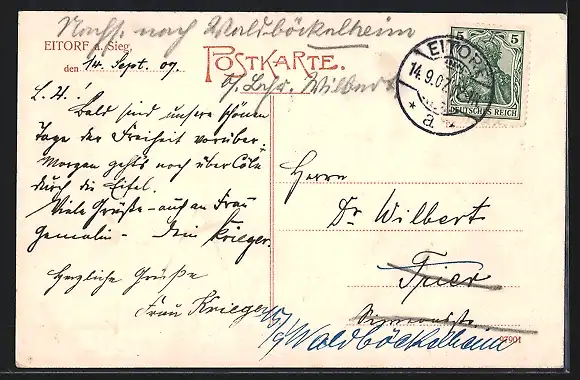 Nachs. nach Waldböckelheim
EITORF a. Sieg.
den 14. Sept. 09.
POSTKARTE.
b. Lehr. Wilbert
EITORF
14.9.07
* a *
5 5
DEUTSCHES REICH
L. H.!
Bald sind unsere schönen
Tage der Freiheit vorüber.
Morgen geht's noch über Cöln
durch die Eifel.
Viele Grüße – auch an Frau
Gemalin – Dein Krieger.
Herzliche Grüße
Frau Krieger
Herrn
Dr. Wilbert
Trier
Waldböckelheim
97901